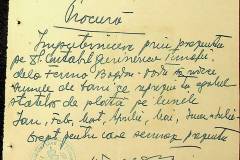 Procură
Împuternicesc prin prezenta
pe Dl. Contabil Gherinescu Timofte
dela ferma Bogdan-Vodă să ridice
sumele de bani ce reprezintă
statelor de plată pe lunile
Ian., Feb., Mart, Aprilie, Mai, Iunie, Iulie
Drept pentru care semnez prezenta